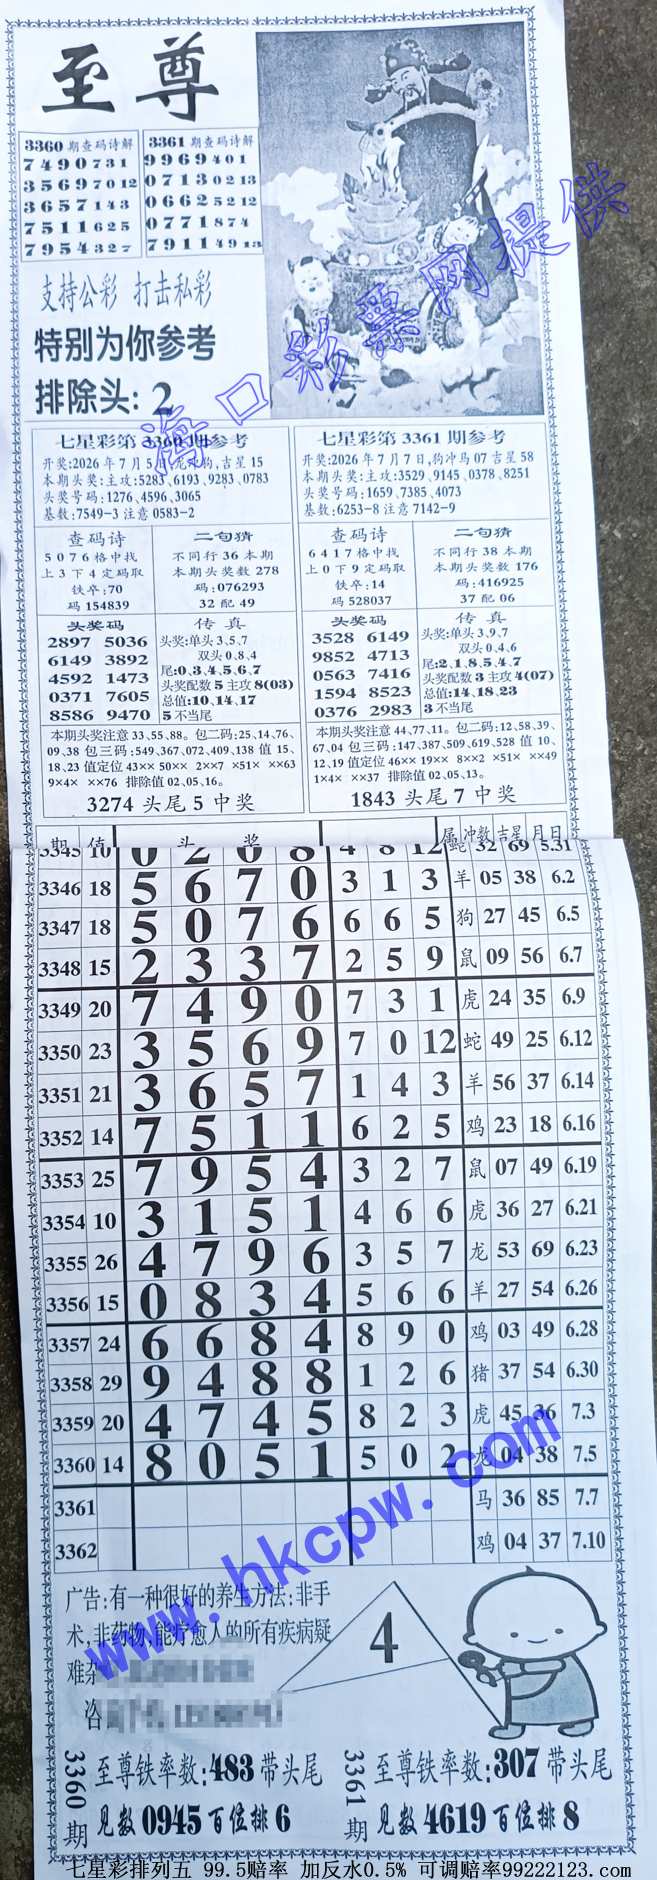 至尊
3360期查码诗解
7490731
35697012
3657143
7511625
7954327
3361期查码诗解
9969401
07130213
06625212
0771874
79114913
支持公彩 打击私彩
特别为你参考
排除头: 2
海口彩票网提供
七星彩第3360期参考
开奖:2026年7月5日,龙冲狗,吉星15
本期头奖:主攻:5283,6193,9283,0783
头奖号码:1276,4596,3065
基数:7549-3 注意0583-2
查码诗
5076格中找
上3下4定码取
铁卒:70
码154839
二句猜
不同行36本期
本期头奖数278
码:076293
32配49
头奖码
2897 5036
6149 3892
4592 1473
0371 7605
8586 9470
传真
头奖:单头3,5,7
双头0,8,4
尾:0,3,4,5,6,7
头奖配数5主攻8(03)
总值:10,14,17
5不当尾
本期头奖注意33,55,88。包二码:25,14,76,
09,38包三码:549,367,072,409,138值15,
18,23值定位43×× 50×× 2××7 ×51× ××63
9×4× ××76 排除值02,05,16。
3274头尾5中奖
七星彩第3361期参考
开奖:2026年7月7日,狗冲马07吉星58
本期头奖:主攻:3529,9145,0378,8251
头奖号码:1659,7385,4073
基数:6253-8注意7142-9
查码诗
6417格中找
上0下9定码取
铁卒:14
码528037
二句猜
不同行38本期
本期头奖数176
码:416925
37配06
头奖码
3528 6149
9852 4713
0563 7416
1594 8523
0376 2983
传真
头奖:单头3,9,7
双头0,4,6
尾:2,1,8,5,4,7
头奖配数3主攻4(07)
总值:14,18,23
3不当尾
本期头奖注意44,77,11。包二码:12,58,39,
67,04包三码:147,387,509,619,528值10,
12,19值定位46×× 19×× 8××2 ×51× ××49
1×4× ××37 排除值02,05,13。
1843头尾7中奖
期 值 头奖 属 冲数 吉星 月日
3345 10 0 2 0 8 4 8 12 蛇 32 69 5.31
3346 18 5 6 7 0 3 1 3 羊 05 38 6.2
3347 18 5 0 7 6 6 6 5 狗 27 45 6.5
3348 15 2 3 3 7 2 5 9 鼠 09 56 6.7
3349 20 7 4 9 0 7 3 1 虎 24 35 6.9
3350 23 3 5 6 9 7 0 12 蛇 49 25 6.12
3351 21 3 6 5 7 1 4 3 羊 56 37 6.14
3352 14 7 5 1 1 6 2 5 鸡 23 18 6.16
3353 25 7 9 5 4 3 2 7 鼠 07 49 6.19
3354 10 3 1 5 1 4 6 6 虎 36 27 6.21
3355 26 4 7 9 6 3 5 7 龙 53 69 6.23
3356 15 0 8 3 4 5 6 6 羊 27 54 6.26
3357 24 6 6 8 4 8 9 0 鸡 03 49 6.28
3358 29 9 4 8 8 1 2 6 猪 37 54 6.30
3359 20 4 7 4 5 8 2 3 虎 45 36 7.3
3360 14 8 0 5 1 5 0 2 龙 04 38 7.5
3361 马 36 85 7.7
3362 鸡 04 37 7.10
www.hkcpw.com
广告:有一种很好的养生方法:非手
术,非药物,能疗愈人的所有疾病疑
难杂
咨
4
3360期
至尊铁率数:483带头尾
见数0945百位排6
3361期
至尊铁率数:307带头尾
见数4619百位排8
七星彩排列五 99.5赔率 加反水0.5% 可调赔率99222123.com